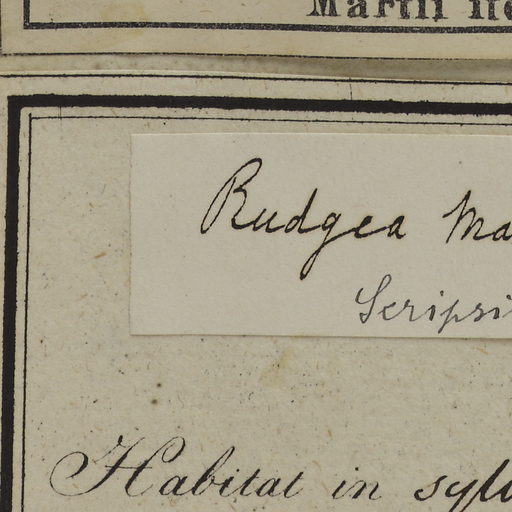 Martii
Rudgea Ma
Scripsi
Habitat in sylv